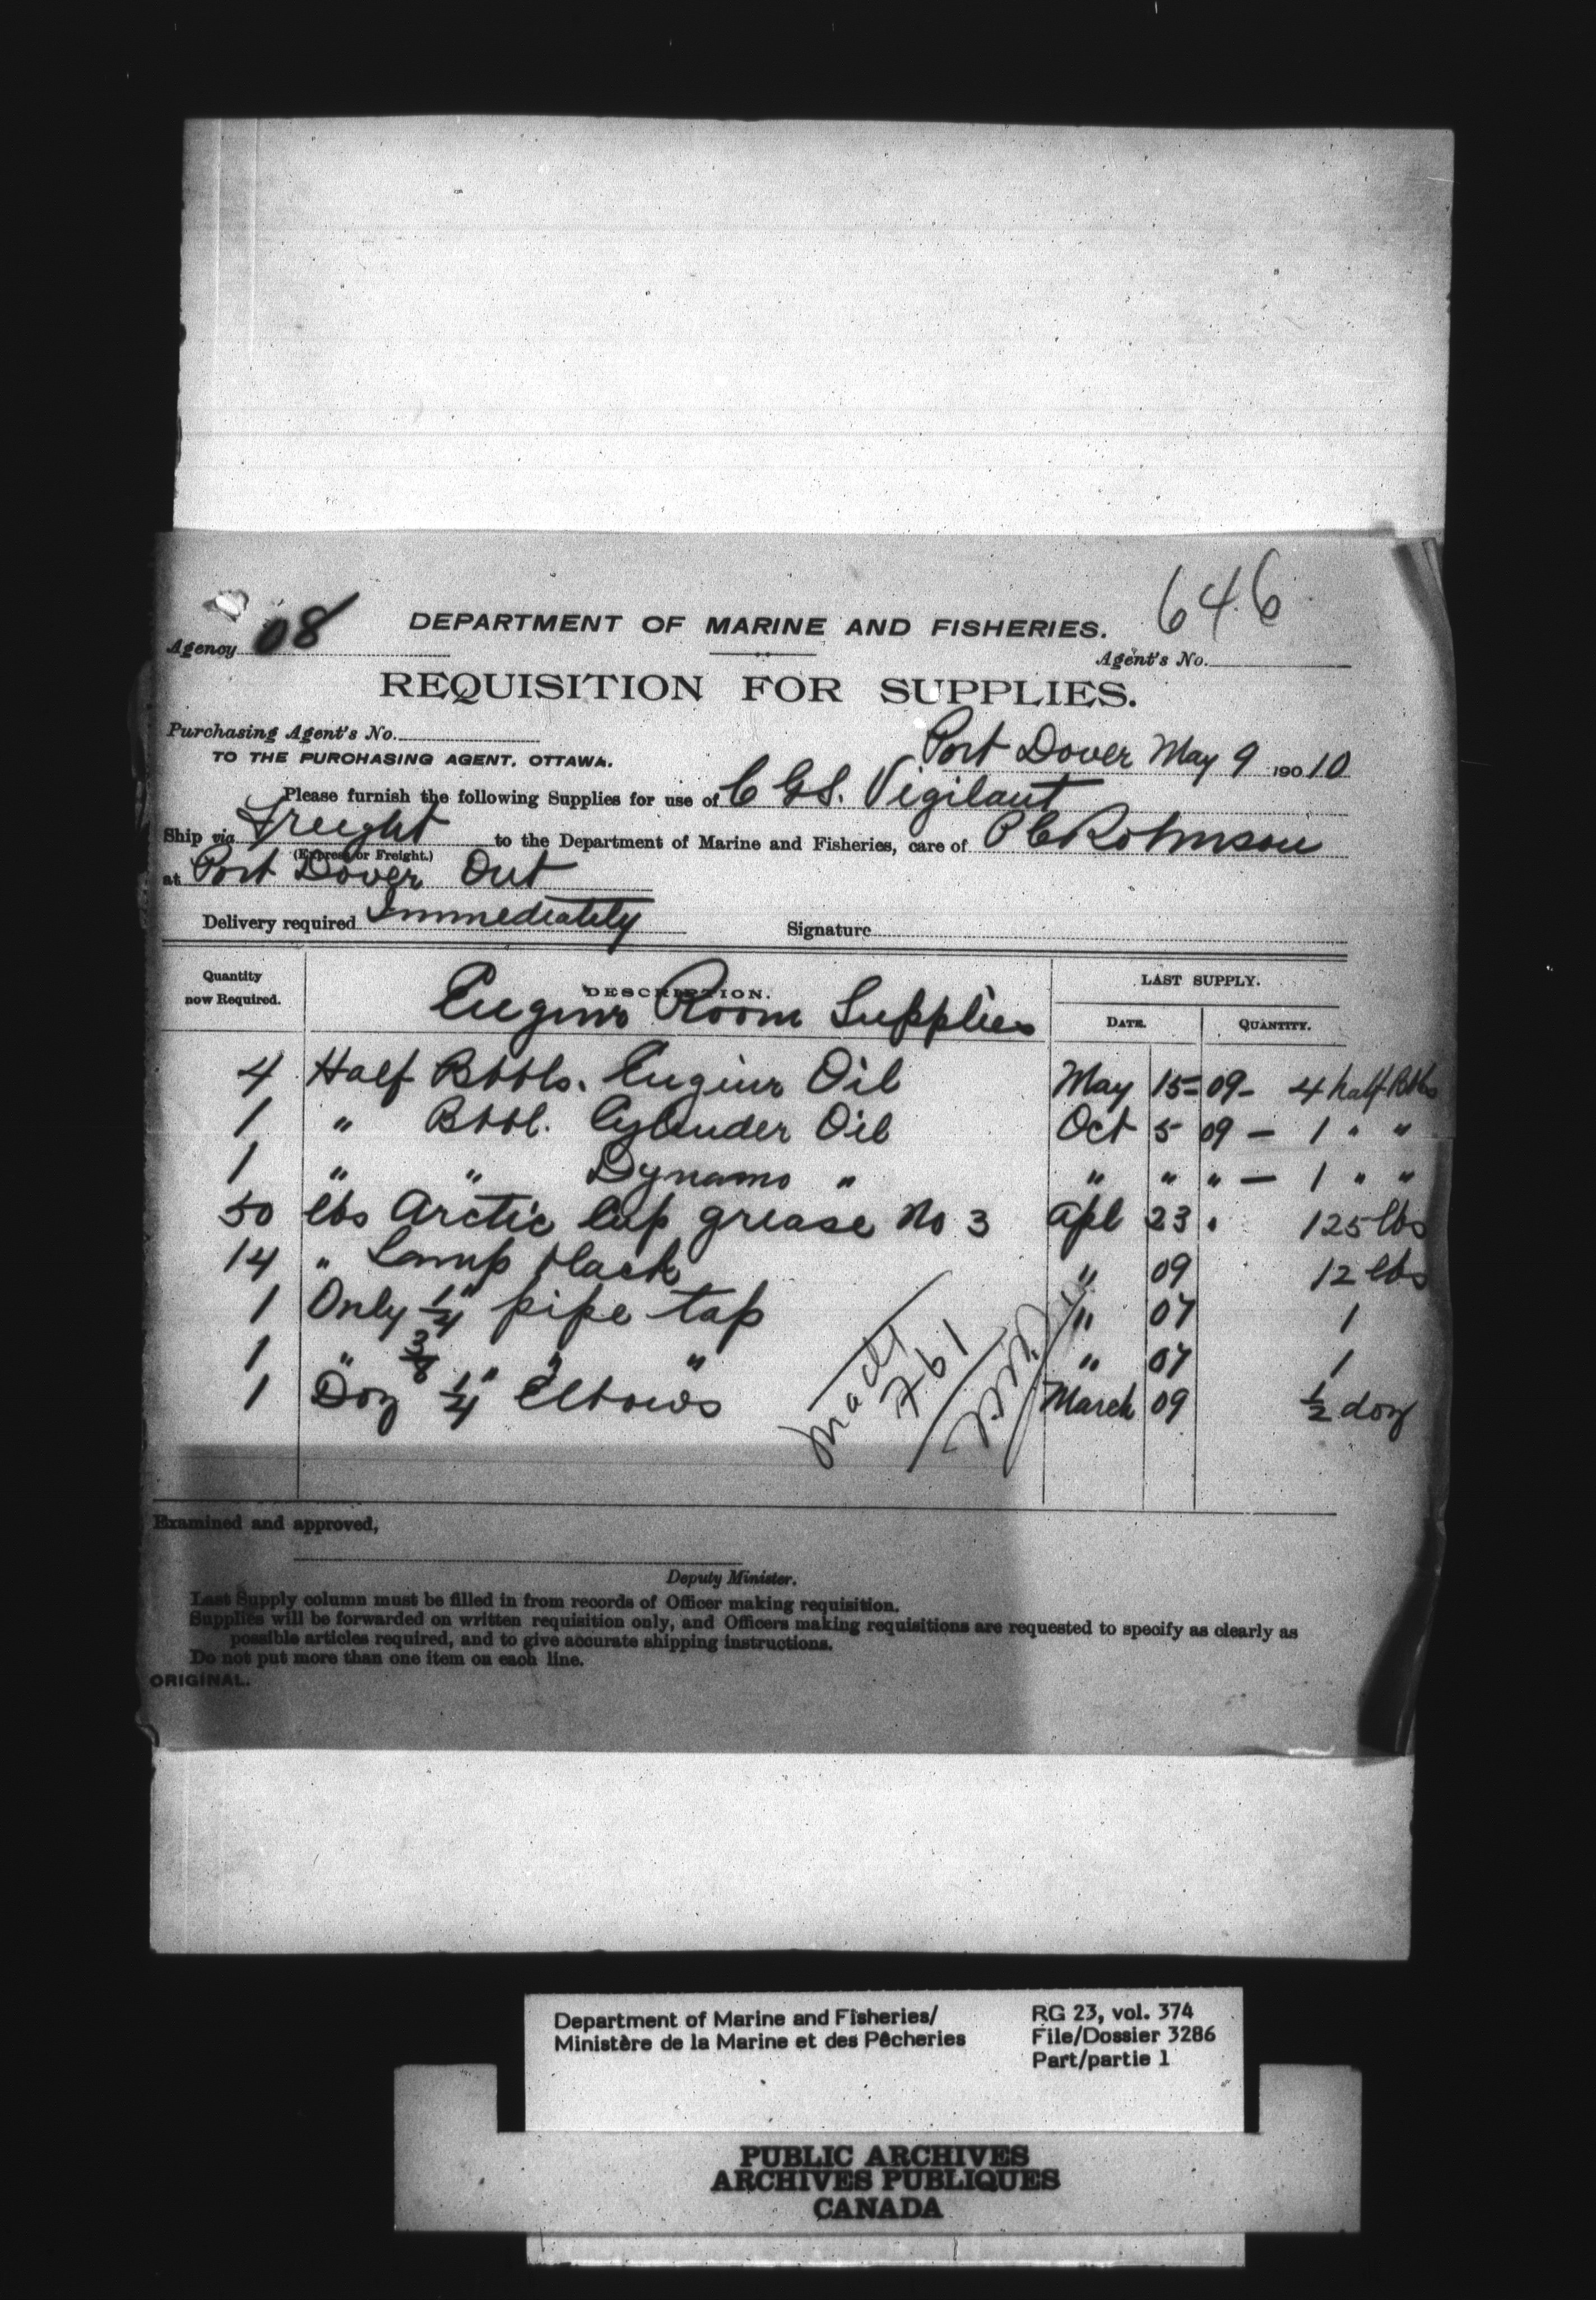 646
Agency 08
DEPARTMENT OF MARINE AND FISHERIES.
Agent's No.
REQUISITION FOR SUPPLIES.
Purchasing Agent's No.
TO THE PURCHASING AGENT, OTTAWA.
Port Dover May 9 190 10
Please furnish the following Supplies for use of C G S. Vigilant
Ship via Freight to the Department of Marine and Fisheries, care of P C Robinson
(Express or Freight.)
at Port Dover Ont
Delivery required Immediately Signature
Quantity now Required. DESCRIPTION. LAST SUPPLY.
DATE. QUANTITY.
Engine Room Supplies
4 Half Bbbls. Engine Oil May 15 = 09 - 4 half Bbls
1 " Bbbl. Cylinder Oil Oct 5 09 — 1 " "
1 " " Dynamo " " " " — 1 " "
50 lbs Arctic Cup grease No 3 Apl 23 " 125 lbs
14 " Lamp black " 09 12 lbs
1 Only 1/4" pipe tap " 07 1
1 " 3/8 " " " 07 1
1 Doz 1/4" Elbows March 09 1/2 doz
761
Examined and approved,
Deputy Minister.
Last Supply column must be filled in from records of Officer making requisition.
Supplies will be forwarded on written requisition only, and Officers making requisitions are requested to specify as clearly as
possible articles required, and to give accurate shipping instructions.
Do not put more than one item on each line.
ORIGINAL.
Department of Marine and Fisheries/
Ministère de la Marine et des Pêcheries
RG 23, vol. 374
File/Dossier 3286
Part/partie 1
PUBLIC ARCHIVES
ARCHIVES PUBLIQUES
CANADA